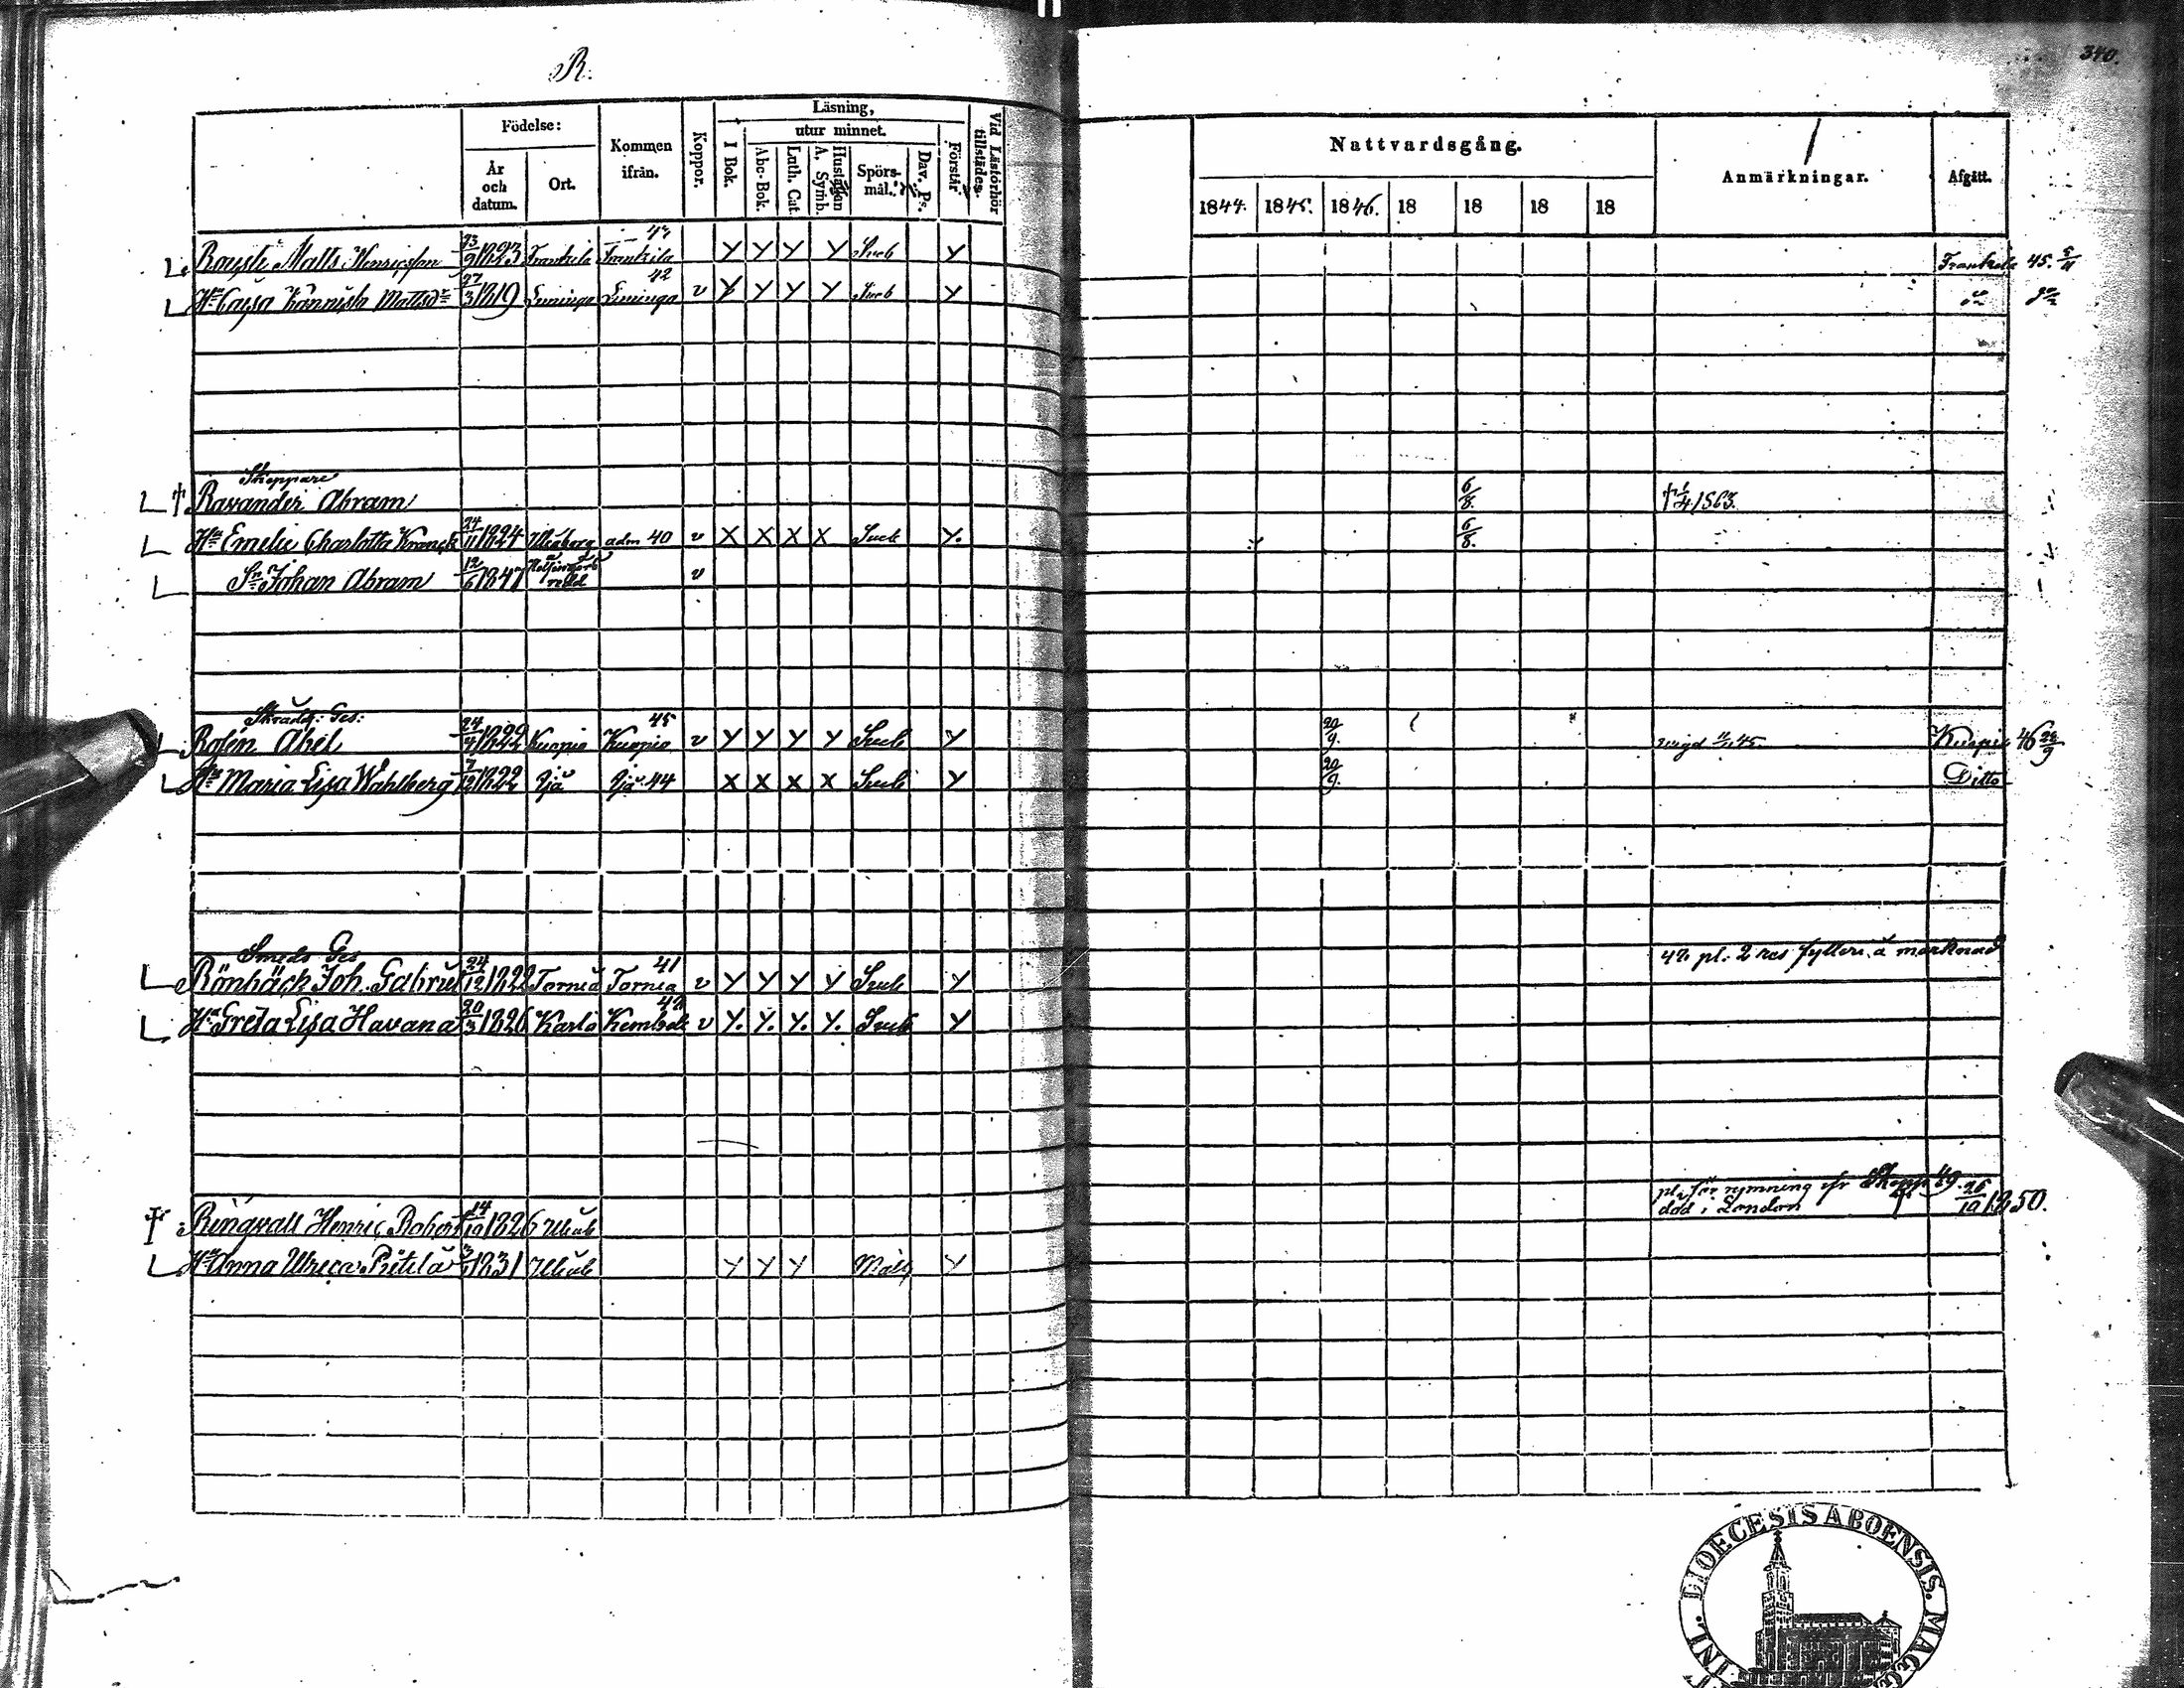 R.
340.
Födelse:
År och datum.
Ort.
Kommen ifrån.
Koppor.
Läsning,
I Bok.
utur minnet.
Abc-Bok.
Luth. Cat.
Hustaflan A, Symb.
Spörs-mål.
Dav. Ps.
Förstår
Vid Läsförhör tillstädes.
Nattvardsgång.
1844. 1845. 1846. 18 18 18 18
Anmärkningar.
Afgått.
Matts Henricsson 23/9 1823 Frantsila Frantsila Y Y Y Y Y Frantsila 45. 5/11
Hu Cajsa Mattsdr 27/3 1819 Limingo Limingo 42 v Y Y Y Y Y do do
Skeppare
† Ravander Abram 6/8. † 1/4 1863.
Hu Emelie Charlotta Kranck 24/11 1824 Uleåborg adm 40 v X X X X Y. 6/8.
Sn Johan Abram 12/6 1847 Helsingörs redd v
Skrädd: Ges:
Rosén Abel 24/4 1822 Kuopio Kuopio 45 v Y Y Y Y Y 20/9. vigd 11/11 45. Kuopio 46 22/9
Hu Maria Lisa Wahlberg 7/12 1822 Ijå Ijå 44 X X X X Y 20/9. Ditto
Smeds Ges
Rönbäck Joh. Gabriel 24/12 1822 Torneå Torneå 41 v Y Y Y Y Y 47 pl. 2 res fylleri å marknad
Hu Greta Lisa Havana 20/3 1826 Karlö Kembele 42 v Y. Y. Y. Y. Y
† Ringvall Henric Robert 14/10 1826 Uleåb pl. för rymning fr Skepp 49. död i London 26/10 1850.
Hu Anna Ulrica Pitilä 1831 Uleåb Y Y Y Y
DIOECESIS ABOENSIS. MAG